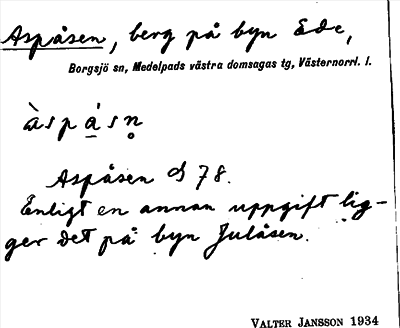 Aspåsen, berg på byn Ede,
Borgsjö sn, Medelpads västra domsagas tg, Västernorrl. l.
àspá̱sn̥
Aspåsen S 78.
Enligt en annan uppgift lig-
ger det på byn Julåsen.
VALTER JANSSON 1934